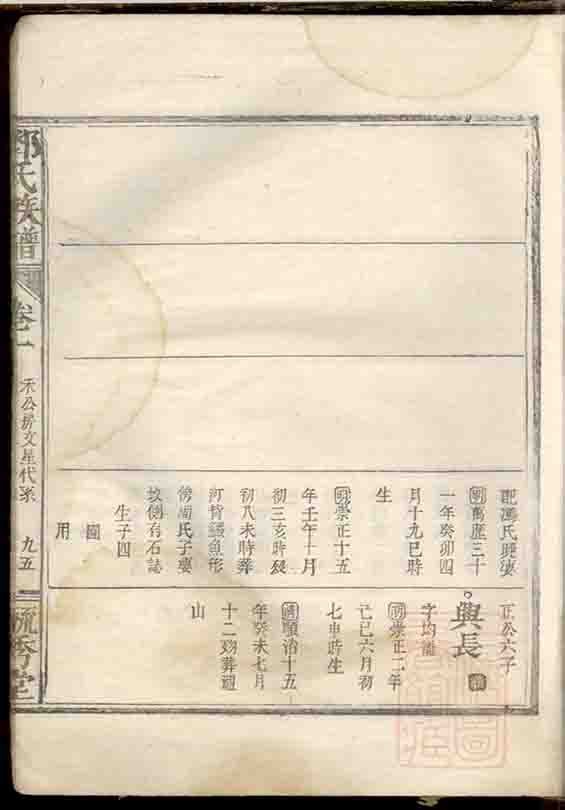 配馮氏
明萬歷三十
一年癸卯四
月十九巳時
生
明崇正十五
年壬午十月
初三亥時歿
初八未時葬
河背鰱魚形
傍面氏子妻
墳側有石誌
生子四
圖
用
正公六子
興長
字均
明崇正二年
己巳六月初
七申時生
清順治十五
年癸未七月
十二歿葬迴
山
鄧氏族譜
卷一
禾公房文星代系
九五
毓秀堂